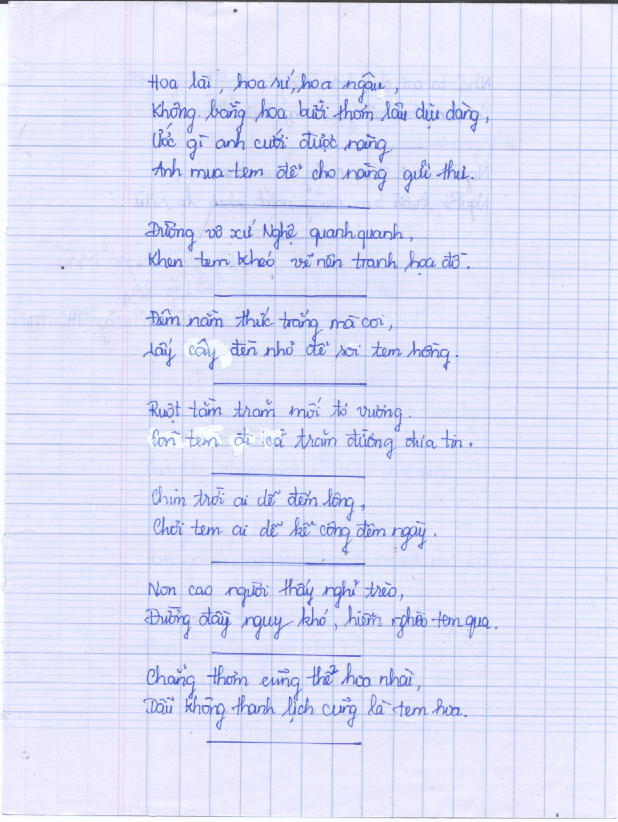 Hoa lài, hoa sứ, hoa ngâu,
Không bằng hoa bưởi thơm lâu dịu dàng,
Ước gì anh cưới được nàng
Anh mua tem để cho nàng gửi thư.
Đường vô xứ Nghệ quanh quanh,
Khen tem khéo vẽ nên tranh họa đồ.
Đêm nằm thức trắng mà coi,
Lấy cây đèn nhỏ để soi tem hồng.
Ruột tằm trăm mối tơ vương.
Con tem đi cả trăm đường đưa tin.
Chim trời ai dễ đếm lông,
Chơi tem ai dễ kể công đêm ngày.
Non cao người thấy nghỉ trèo,
Đường đầy nguy khó, hiểm nghèo tem qua.
Chẳng thơm cũng thể hoa nhài,
Dẫu không thanh lịch cũng là tem hoa.